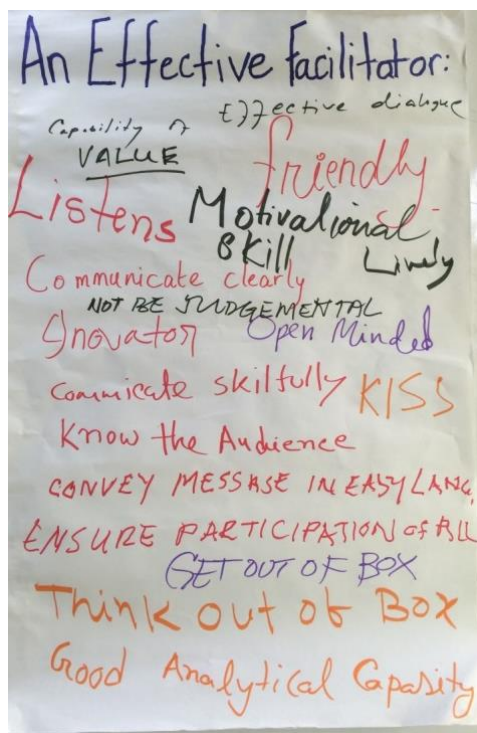 An Effective Facilitator:
Effective dialogue
Capability of
VALUE
friendly
Listens
Motivational
Skill
Lively
Communicate clearly
NOT BE JUDGEMENTAL
Inovator
Open Minded
Commicate skilfully
KISS
Know the Audience
CONVEY MESSASE IN EASY LANG.
ENSURE PARTICIPATION OF ALL
GET OUT OF BOX
Think out of Box
Good Analytical Capasity